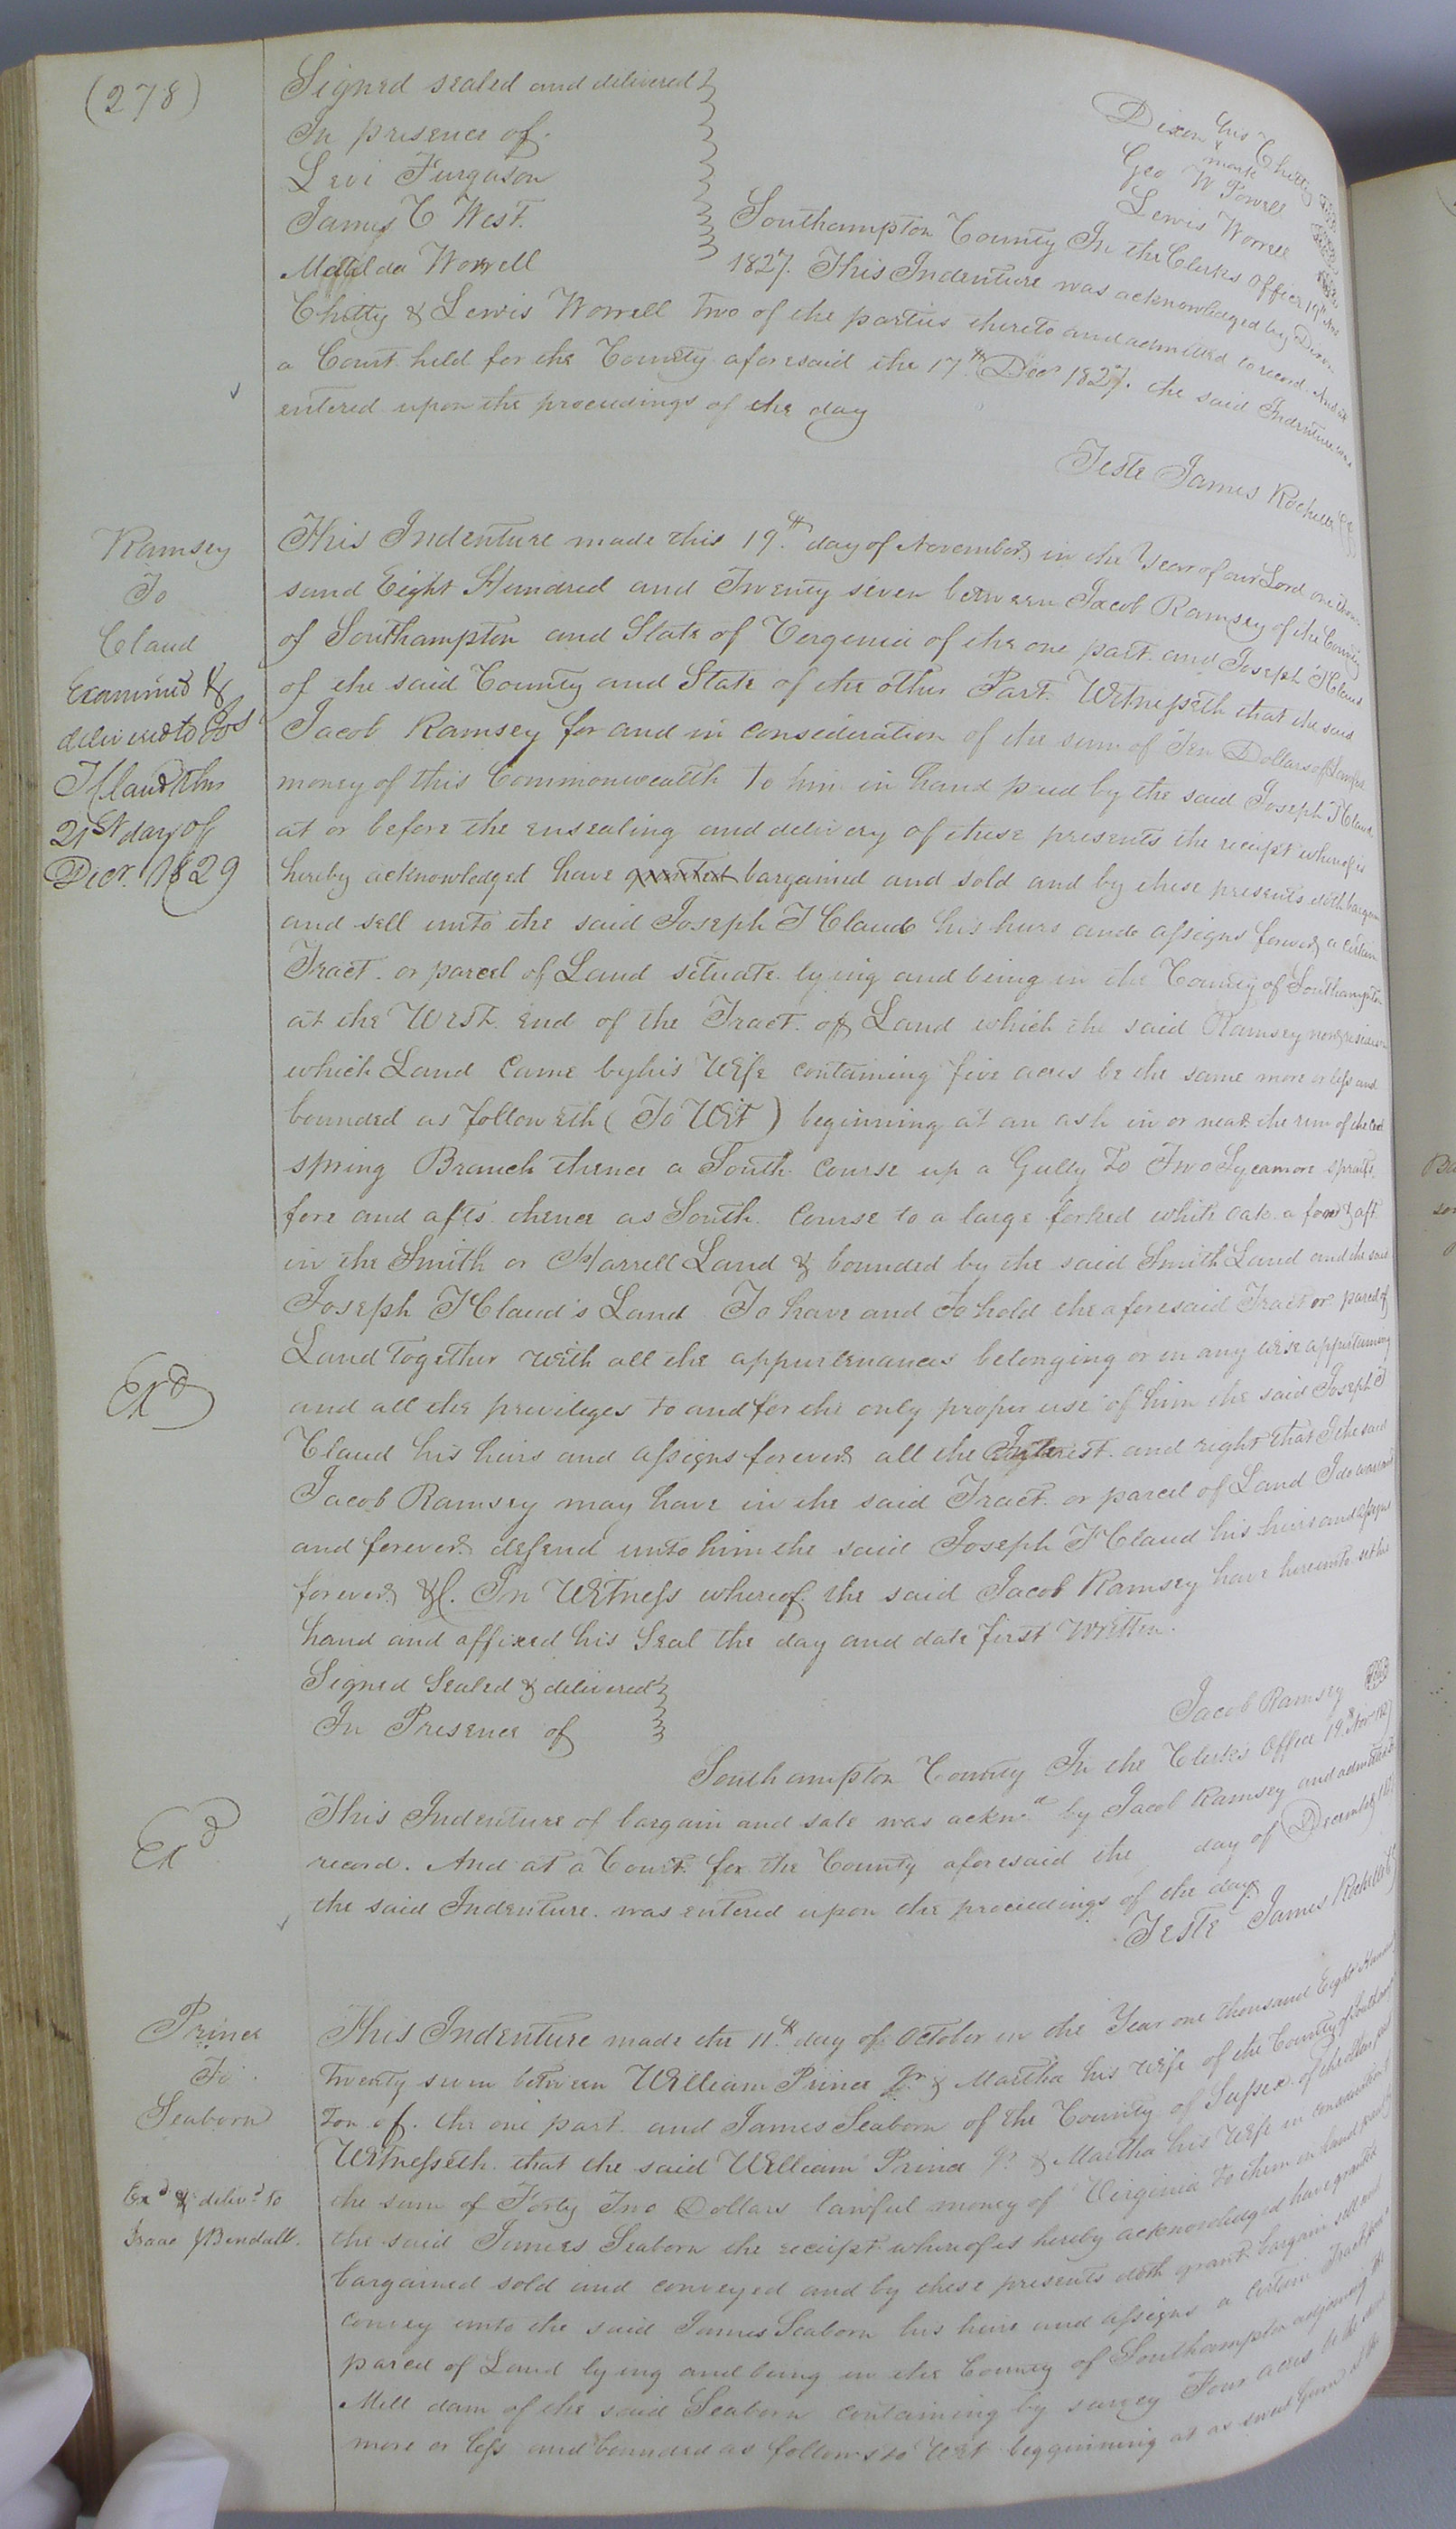 (278)
Signed sealed and delivered
In presence of
Levi Furgason
James C West.
Matilda Worrell
Dixon his x mark Chitty
Geo W Powell
Lewis Worrell
Southampton County In the Clerks office 19th Nov
1827. This Indenture was acknowledged by Dixon
Chitty & Lewis Worrell two of the parties thereto and admitted to record. And at
a Court held for the County aforesaid the 17th Decr 1827. the said Indenture was
entered upon the proceedings of the day
Teste James Rochelle
Ramsey
To
Claud
Examined &
delivered to Jos
T Claud this
21st day of
Decr. 1829
This Indenture made this 19th day of November in the Year of our Lord one thou
sand Eight Hundred and Twenty seven between Jacob Ramsey of the County
of Southampton and State of Vergenia of the one part and Joseph T Claud
of the said County and State of the other Part. Witnesseth that the said
Jacob Ramsey for and in consideration of the sum of Ten Dollars of Lawful
money of this Commonwealth to him in hand paid by the said Joseph T Claud
at or before the ensealing and delivery of these presents the receipt whereof is
hereby acknowledged have bargained and sold and by these presents doth bargain
and sell unto the said Joseph T Claud his heirs and assigns forever a certain
Tract or parcel of Land situate lying and being in the County of Southampton
at the West End of the Tract of Land which the said Ramsey now
which Land Came by his Wife containing five acres be the same more or less and
bounded as followeth (To Wit) beginning at an ash in or near the run of the
spring Branch thence a South Course up a Gully to Two Sycamore sprouts
fore and afts. thence as South Course to a large forked white oak a fore & aft
in the Smith or Harrell Land & bounded by the said Smith Land and the said
Joseph T Claud's Land To have and to hold the aforesaid Tract or parcel of
Land together with all the appurtenances belonging or in any wise appertaining
Exd
and all the previleges to and for the only proper use of him the said Joseph T
Claud his heirs and assigns forever all the Interest and right that I the said
Jacob Ramsey may have in the said Tract or parcel of Land I do warrant
and forever defend unto him the said Joseph T Claud his heirs and assigns
forever &C. In Witness whereof the said Jacob Ramsey have hereunto set his
hand and affixed his Seal the day and date first Written.
Signed Sealed & delivered
In Presence of
Jacob Ramsey
Southampton County In the Clerks Office 19th Nov 1827
This Indenture of bargain and sale was acknd by Jacob Ramsey and admitted to
Exd
record. And at a Court for the County aforesaid the day of December 1827
the said Indenture was entered upon the proceedings of the day
Teste James Rochelle
Prince
To
Seaborn
Exd & delivd to
Isaac J Bendall.
This Indenture made the 11th day of October in the Year one thousand Eight Hundred
twenty seven between William Prince Jr & Martha his wife of the County of Southamp
ton of the one part and James Seaborn of the County of Sussex of the other part
Witnesseth that the said William Prince Jr & Martha his Wife in consideration of
the sum of Forty Two Dollars lawful money of Virginia to them in hand paid by
the said James Seaborn the receipt whereof is hereby acknowledged have granted
bargained sold and conveyed and by these presents doth grant bargain sell and
convey unto the said James Seaborn his heirs and assigns a certain Tract or
parcel of Land lying and being in the County of Southampton adjoining the
Mill dam of the said Seaborn containing by survey Four acres be the same
more or less and bounded as follows to Wit begginning at a sweet gum at the